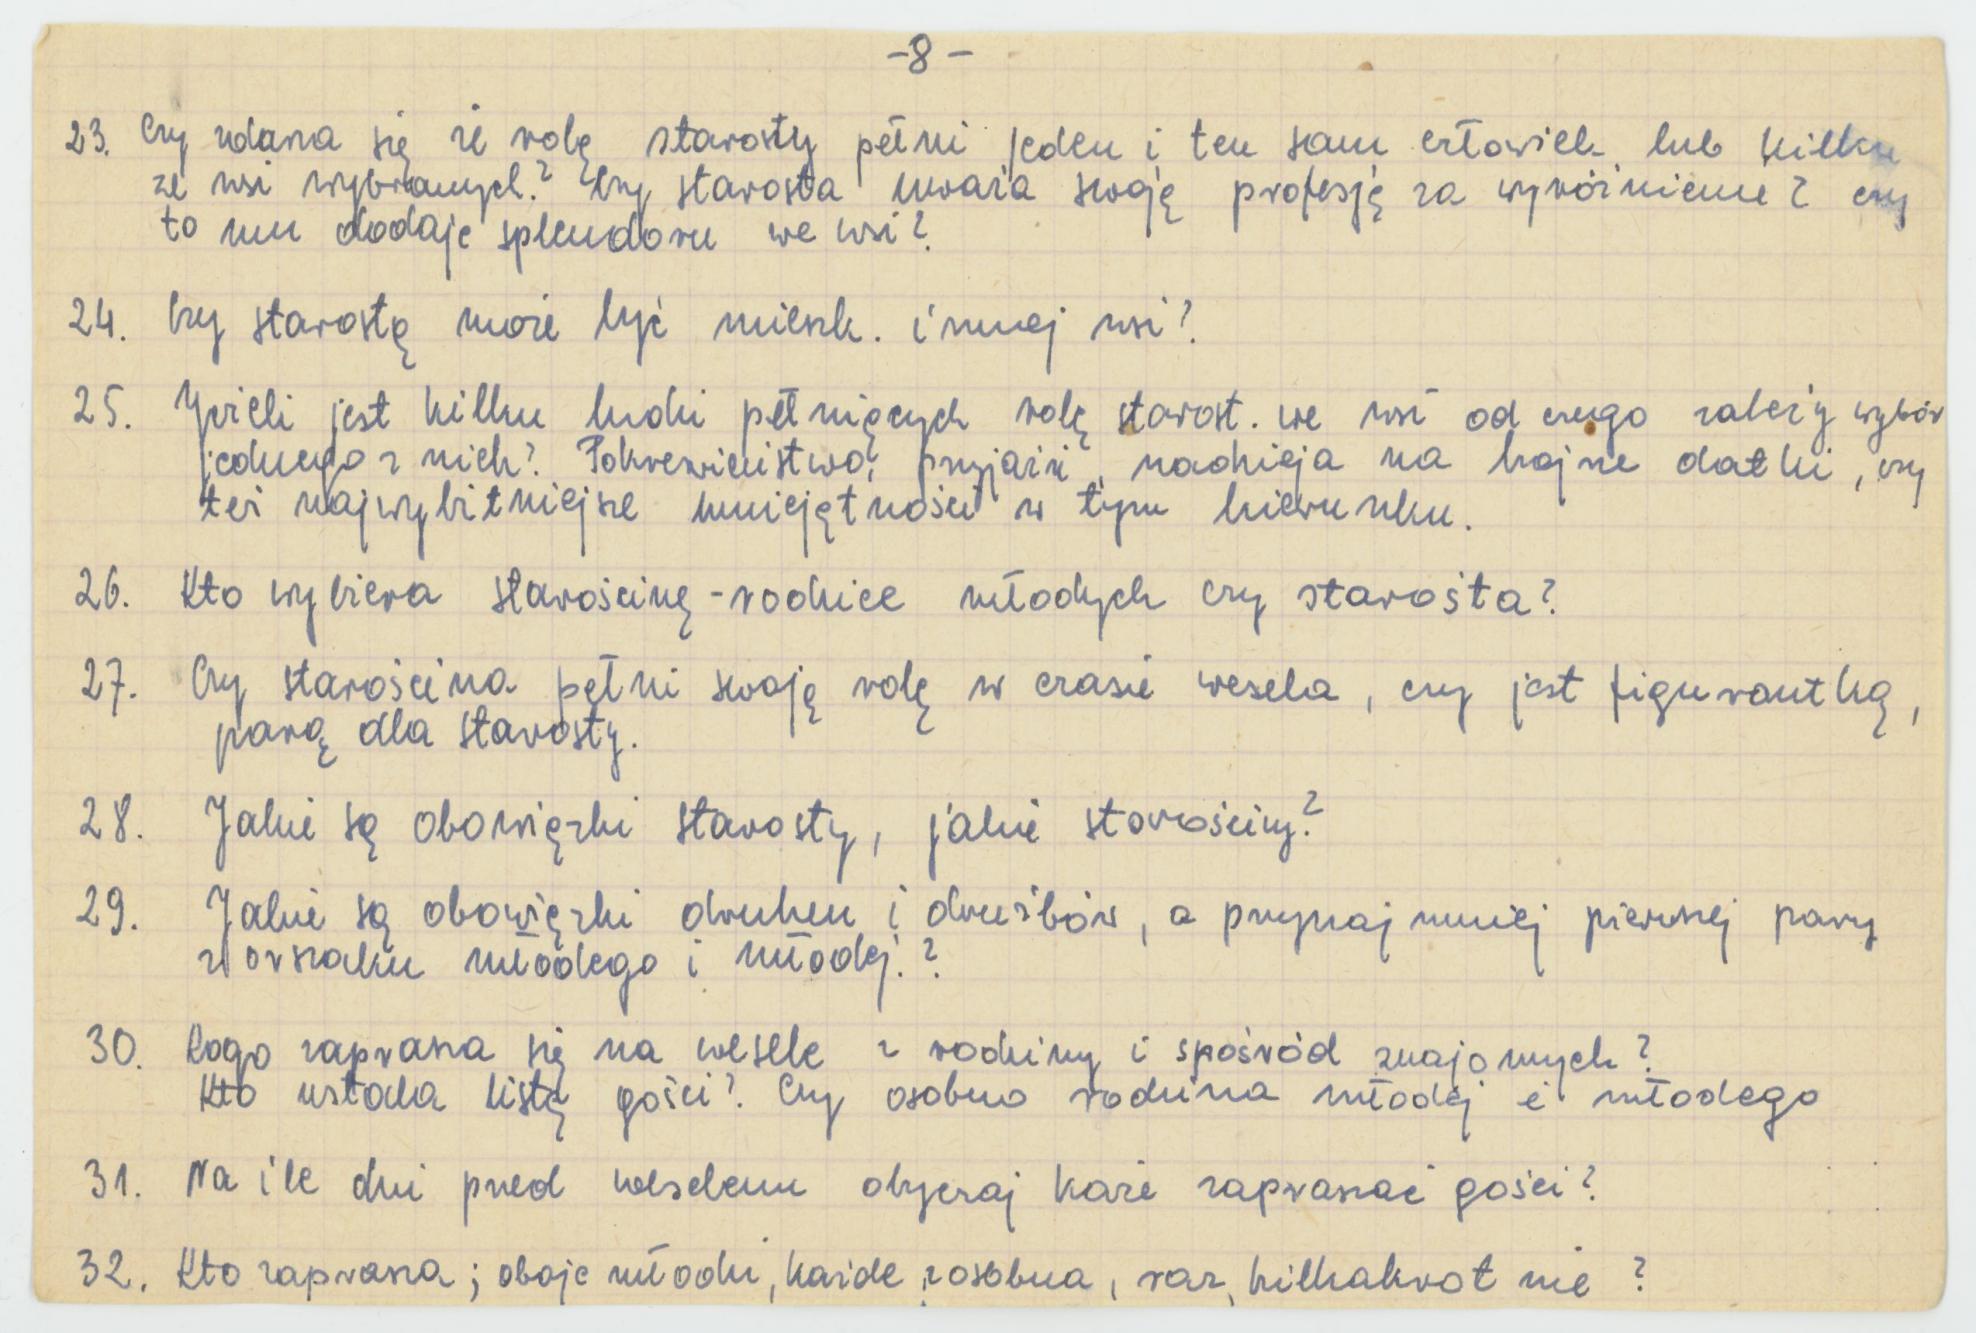 -8-
23. Czy zdarza się że rolę starosty pełni jeden i ten sam człowiek lub kilku
ze wsi wybranych? Czy starosta uważa swoją profesję za wyróżnienie? czy
to mu dodaje splendoru we wsi?
24. Czy starostą może być mieszk. innej wsi?
25. Jeżeli jest kilku ludzi pełniących rolę starost. we wsi od czego zależy wybór
jednego z nich? Pokrewieństwo, przyjaźń, nadzieja na hojne datki, czy
też najwybitniejsze umiejętności w tym kierunku.
26. Kto wybiera starościnę - rodzice młodych czy starosta?
27. Czy starościna pełni swoją rolę w czasie wesela, czy jest figurantką,
parą dla starosty.
28. Jakie są obowiązki starosty, jakie starościny?
29. Jakie są obowiązki druhen i drużbów, a przynajmniej pierwszej pary
z orszaku młodego i młodej.?
30. Kogo zaprasza się na wesele z rodziny i spośród znajomych?
Kto ustala listę gości? Czy osobno rodzina młodej i młodego
31. Na ile dni przed weselem obyczaj każe zapraszać gości?
32. Kto zaprasza; oboje młodzi, każde z osobna, raz, kilkakrotnie?